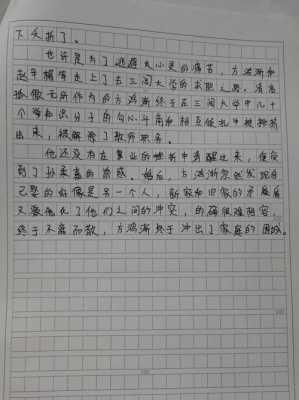 下夭折了。
也许是为了逃避失心爱的痛苦，方鸿渐和
赵辛楣等走上了去三闾大学的求职之路。清高
骄傲无所作为的方鸿渐终于在三闾大学中几十
个知识分子的勾心斗角和相互倾轧中被排挤
出来，被解除了教师职务。
他还没有在复业的挫折中清醒过来，便受
到了孙柔嘉的诱惑。婚后，方鸿渐忽然发现自
己娶的好像是另一个人，新家和旧家的矛盾
又激化了他们之间的冲突，的确很难相容，
终于不欢而散，方鸿渐终于冲出了家庭的围城。